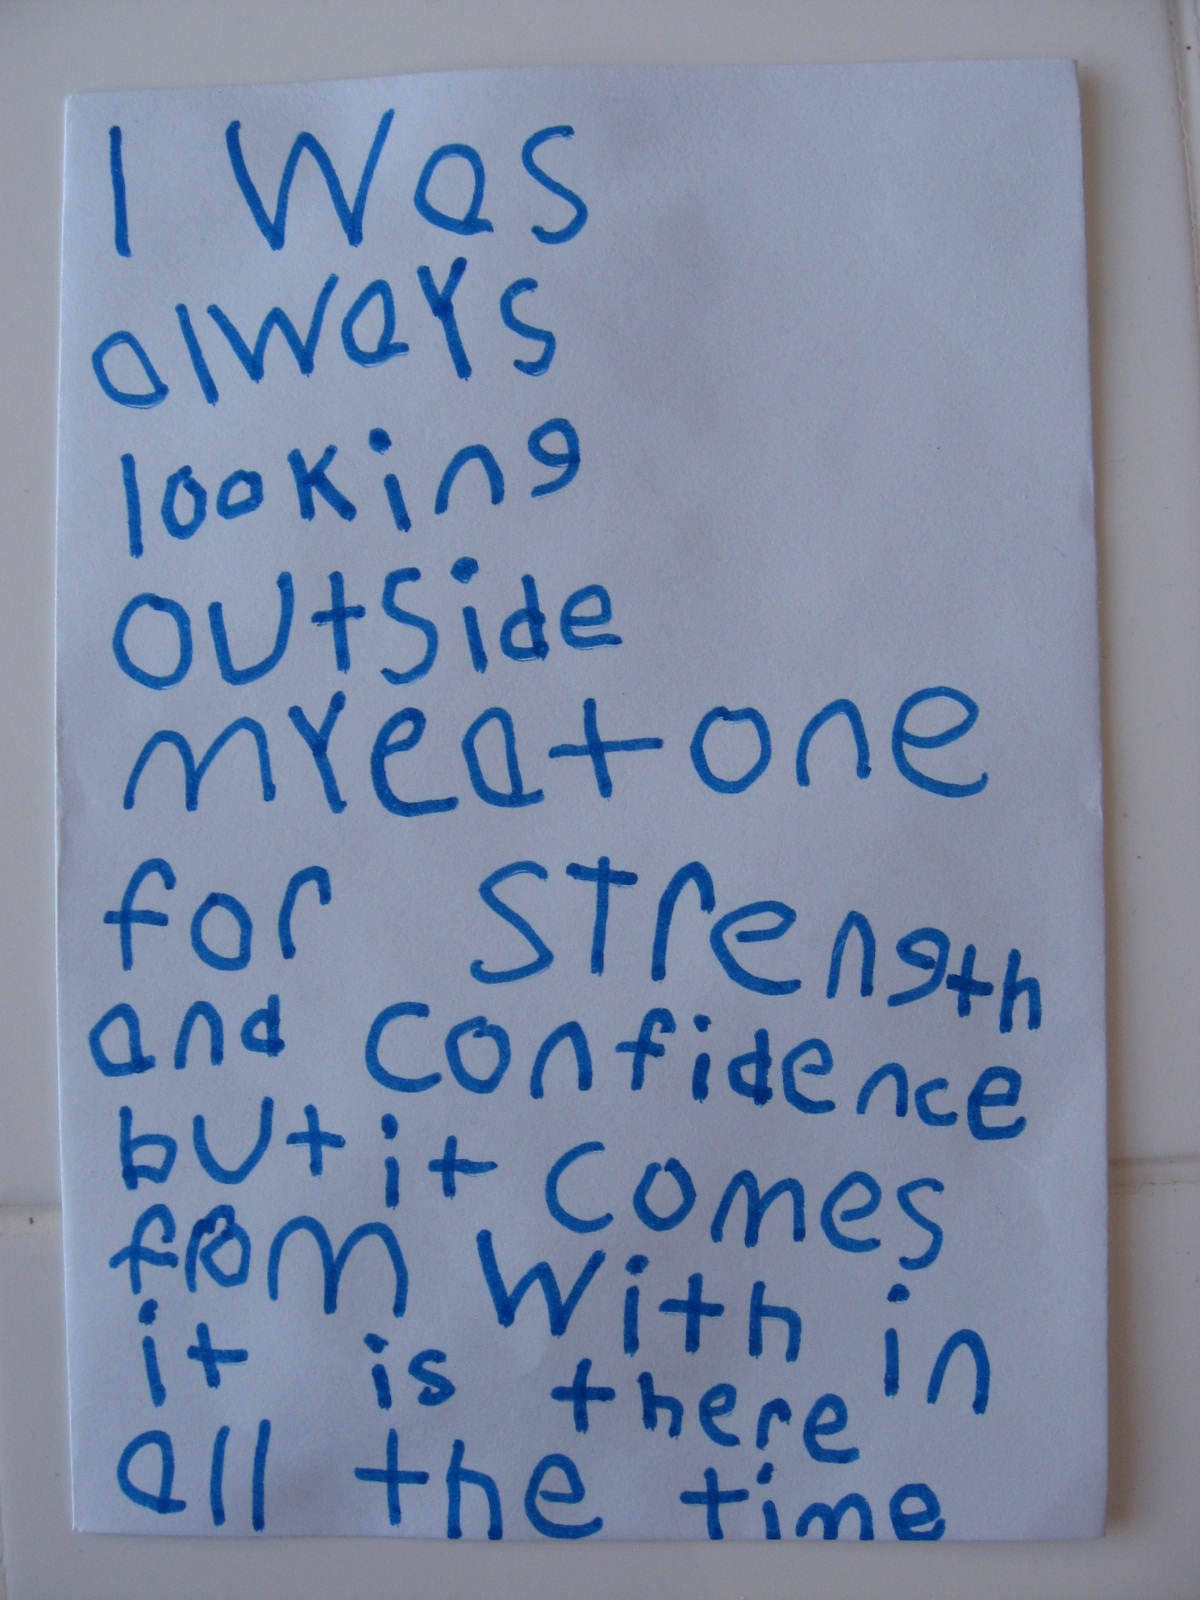 I Was
always
looking
OUtSide
MYeatone
for Strength
and Confidence
bUt it Comes
from With in
it is there
all the time